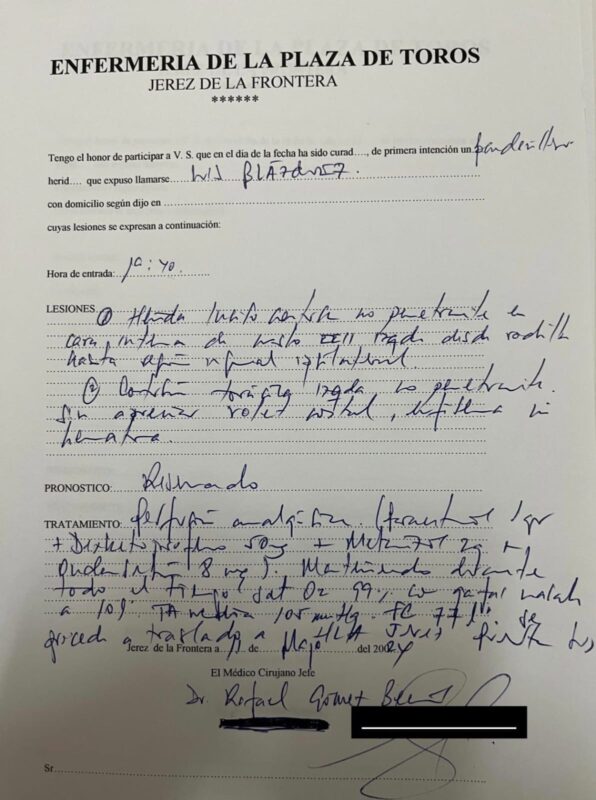 ENFERMERIA DE LA PLAZA DE TOROS
JEREZ DE LA FRONTERA
******
Tengo el honor de participar a V. S. que en el día de la fecha ha sido curad...., de primera intención un banderillero
herid.... que expuso llamarse Luis Blázquez.
con domicilio según dijo en
cuyas lesiones se expresan a continuación:
Hora de entrada:
LESIONES ① Herida no penetrante en
cara interna de izqda desde rodilla
hasta ipsilateral.
② Contusión torácica izqda no penetrante.
Sin apreciar volet costal, enfisema ni
PRONOSTICO: Reservado
TRATAMIENTO: Perfusión analgésica (Paracetamol 1gr
+ Dexketoprofeno 50mg + Metamizol 2g +
Ondansetrón 8 mg). Manteniendo durante
todo el tiempo sat O2 99% con gafas nasales
a 10l TA media 105 mmHg. FC 77 se
procede a traslado a HLA Jerez
Jerez de la Frontera a de Mayo del 2024
El Médico Cirujano Jefe
Dr. Rafael Gómez
Sr.